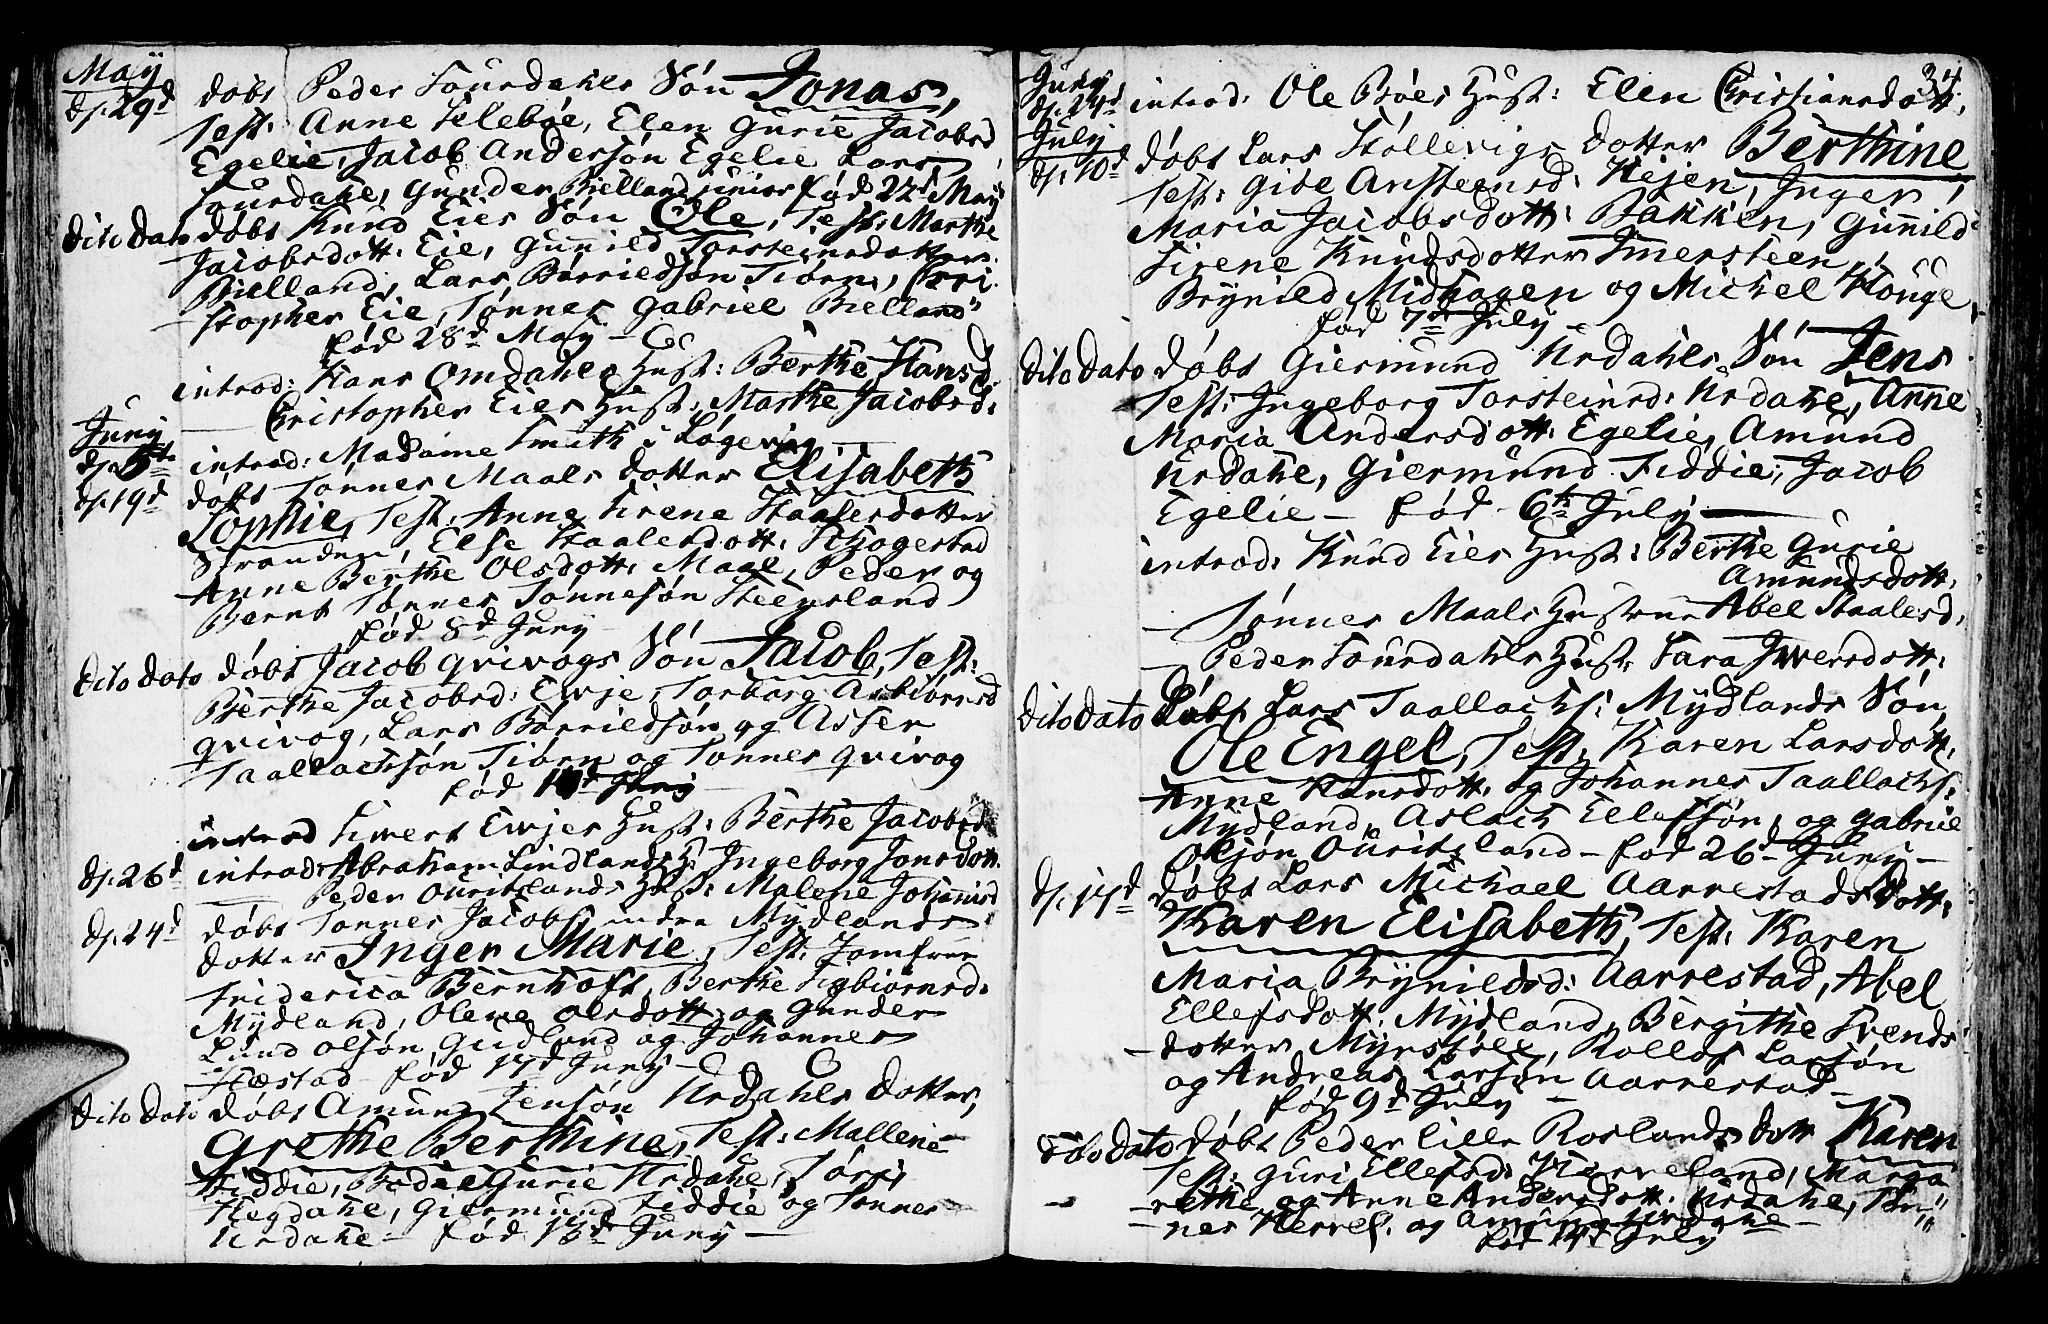 May
d. 29d døbt Peder Sourdahls Søn Jonas,
Test: Anne Selebøe, Elen Gurie Jacobsd
Egelie, Jacob Andersøn Egelie Lars
Sourdahl, Gunder Bielland junior fød 22d May
dito dato døbt Knud Eies Søn Ole, Test: Marthe
Jacobsdott: Eie, Gunild Torsteinsdotter
Bielland, Lars Børrildsøn Tiørn, Chri
stopher Eie, Tønnes Gabriel Bielland
fød 28d May
introd: Hans Omdahls Hust: Berthe Hansd
Christopher Eies Hust: Marthe Jacobsd:
Juny
d. 5t introd: Madame Smith i Løgevig
d. 19d døbt Tønnes Maals dotter Elisabeth
Sophie, Test: Anne Sirene Staalesdotter
Stranden, Else Staalesdott: Skogestad
Anne Berthe Olsdott: Maal, Peder og
Bernt Tønnes Tønnesøn Steensland
fød 8d Juny
dito dato døbt Jacob Qvivogs Søn Jacob, Test:
Berthe Jacobsd: Ewje, Torborg Asbiørnsd
Qvivog, Lars Børrildsøn og Asser
Taallachsøn Tiørn og Tønnes Qvivog
fød Juny
introd Siwert Ewjes Hust: Berthe Jacobsd
d. 26d introd: Abraham Lindlands H: Ingeborg Jonsdott.
Peder Ouritslands Hust: Malene Johannisd
d. 24d døbt Tønnes Jacobs indre Mydlands
dotter Inger Marie, Test: Jomfrue
Friderica Bernhoft, Berthe Sigbiørnsd:
Mydland, Olene Olsdott og Gunder
Lund Olsøn Gudland og Johannes
Hæstad fød 17d Juny
dito dato døbt Amund Jensøn Urdahls dotter,
Grethe Berthine, Test: Mallene
Fiddie, Bodiel Gurie Urdahl, Søren
Hegdahl, Giermund Fiddie og Tønnes
Urdahl fød 13d Juny
34
Juny
d. 24d introd: Ole Bøes Hust: Elen Christiansdott.
July
d. 10d døbt Lars Støllevigs dotter Berthine
Test: Gitle Ansteensd: Hejen, Inger
Maria Jacobsdott: Bakken, Gunild
Sirene Knudsdotter Imersteen,
Brynild Midhagen og Michel Houge
fød 7d July
dito dato døbt Giermund Urdahls Søn Jens
Test: Ingeborg Torsteinsd: Urdahl, Anne
Maria Andersdott: Egelie, Amund
Urdahl, Giermund Fiddie, Jacob
Egelie fød 6th July
introd: Knud Eies Hust: Berthe Gurie
Amundsdott:
Tønnes Maals Hustrue Abel Staalesd,
Peder Sourdahls Hust: Sara Iversdott:
dito dato Døbt Lars Taallachs: Mydlands Søn
Ole Engel, Test: Karen Larsdott
Anne Hansdott: og Johannes Taallachs:
Mydland, Aslach Ellefsøn, og Gabriel
Olsøn Ouritsland fød 26d Juny
d. 17d døbt Lars Michael Aarrestads Dott:
Karen Elisabeth, Test: Karen
Maria Brynildsd: Aarrestad, Abel
Ellefsdott Mydland, Bergithe Svends
dotter Myrstøll, Rollof Larsøn
og Andreas Larsøn Aarrestad
fød 9d July
dito dato døbt Peder lille Roslands dott Karen
Test: Guri Ellefsd: Herreland, Marga
rethe og Anne Andersdott: Urdahl, Tøn
nes Herrel. og Amund Urdahl
fød 14d July